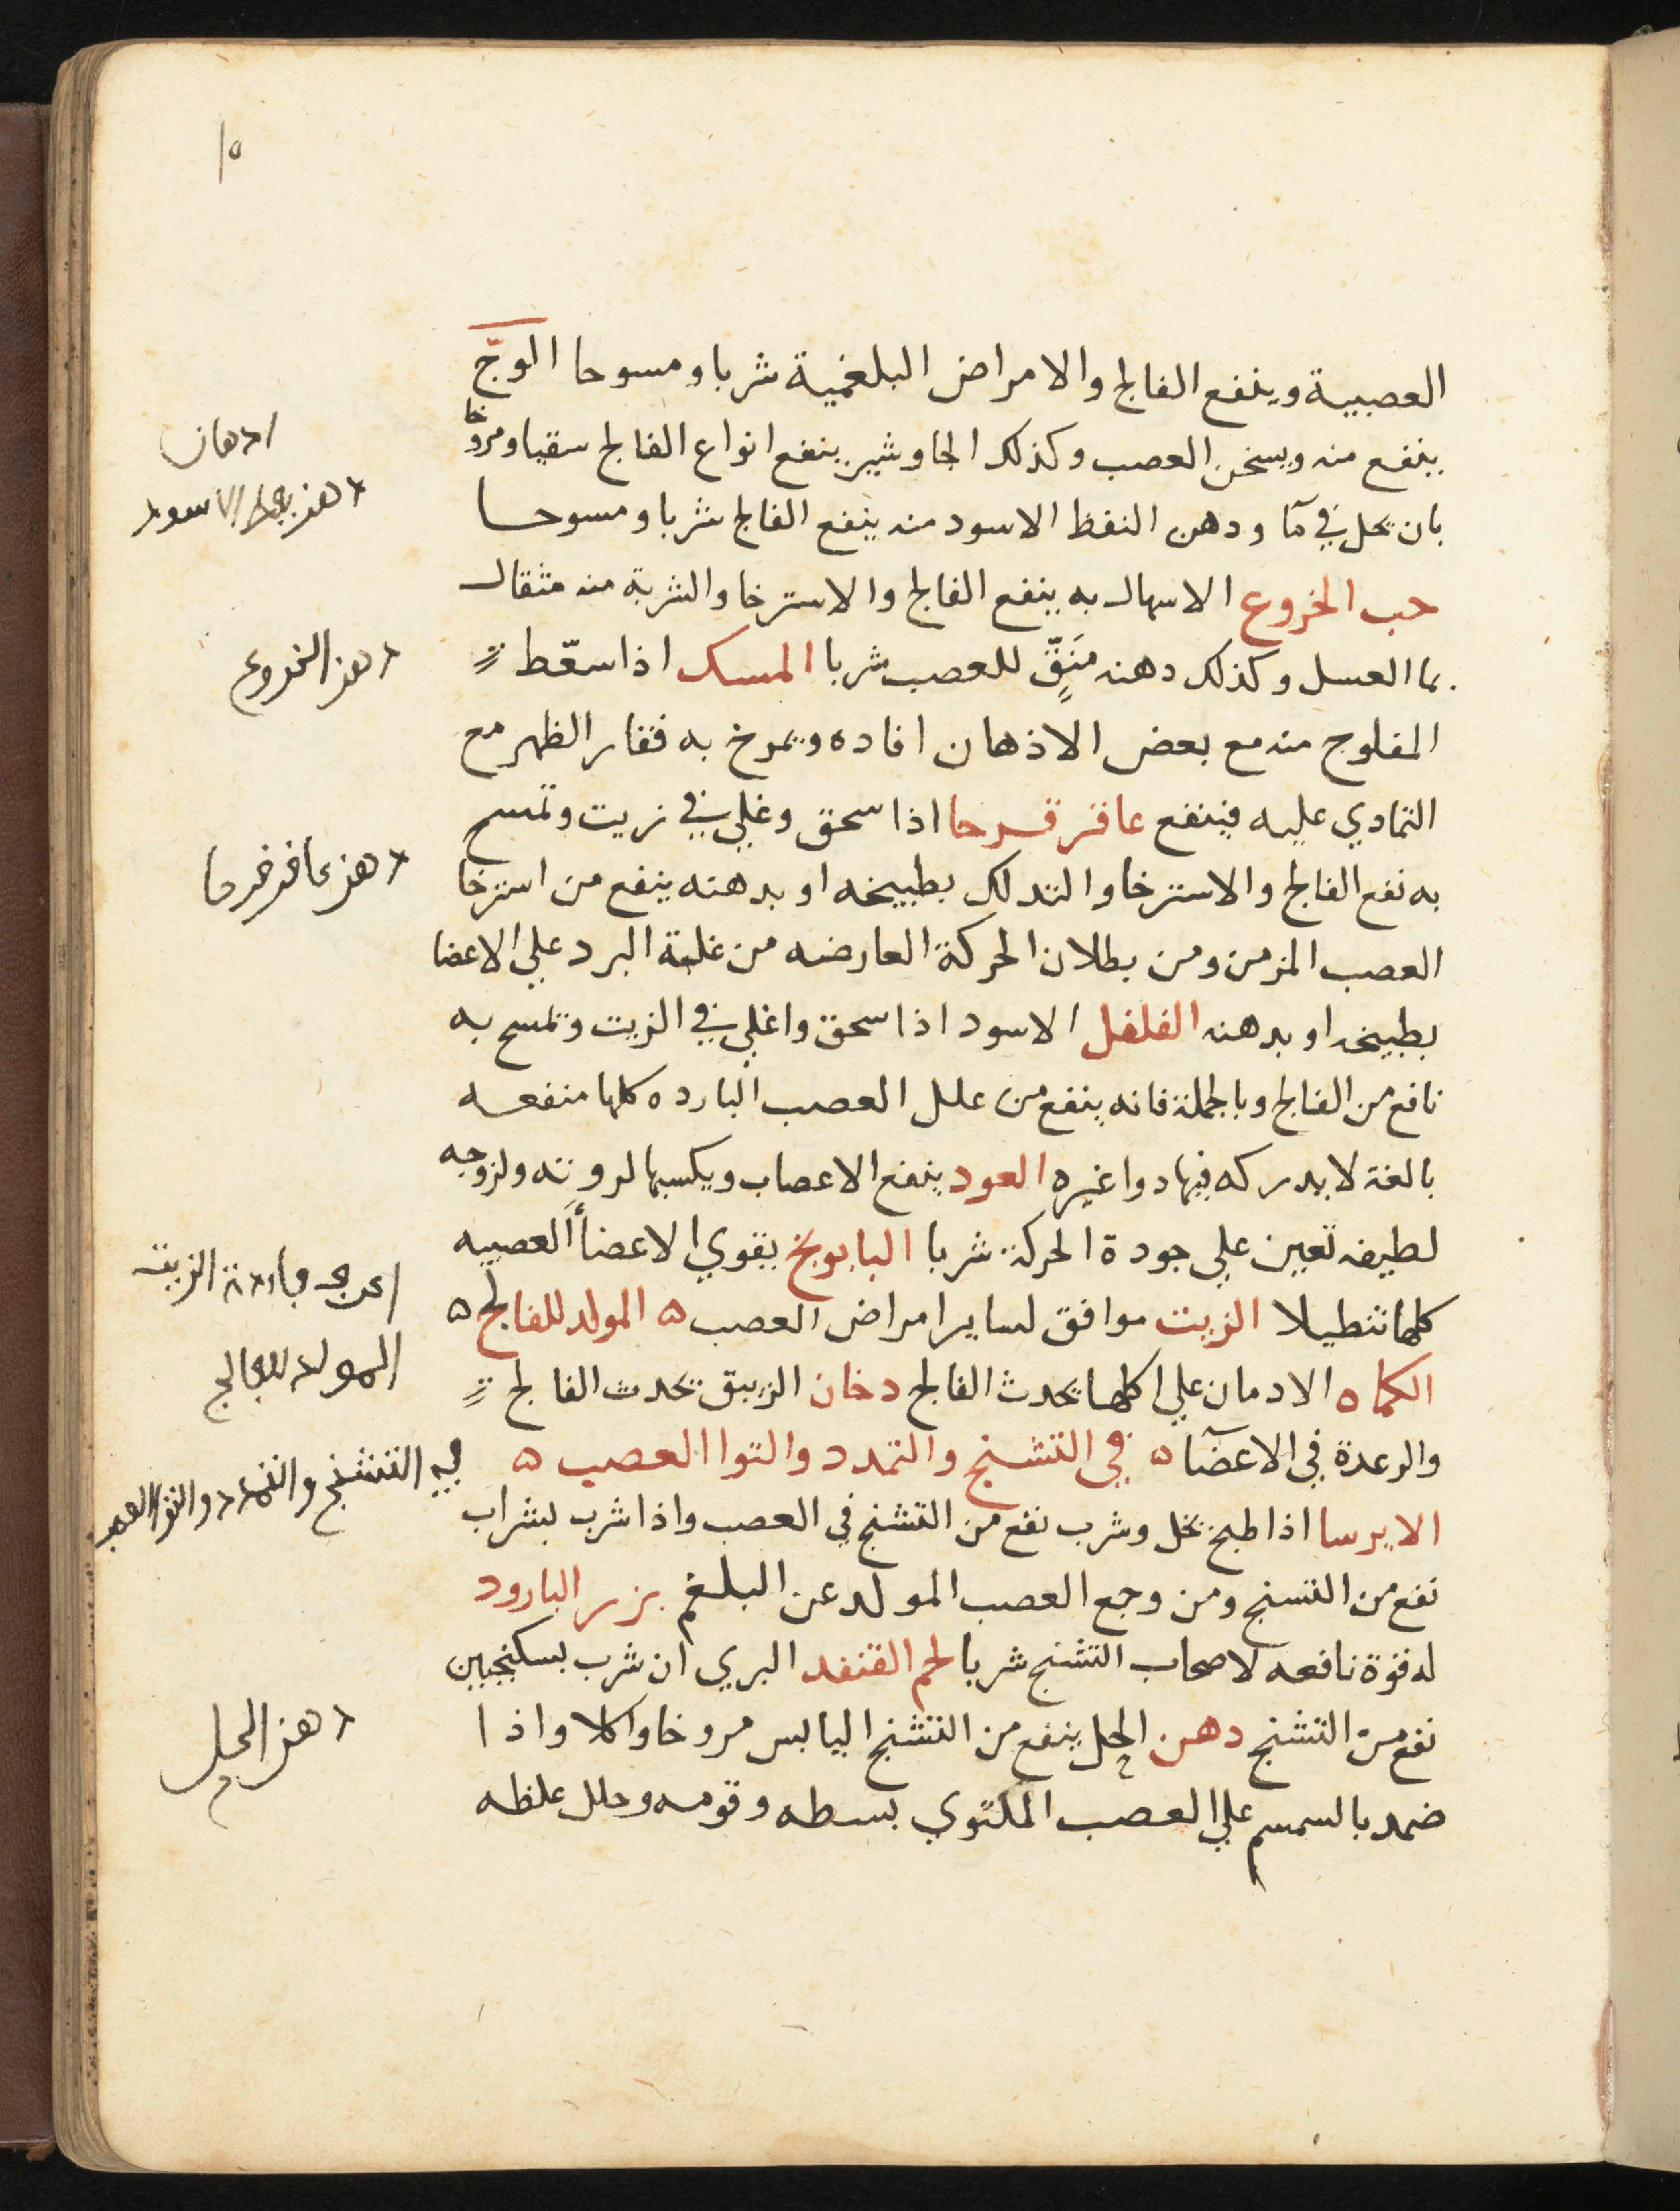 ١٥
العصبية وينفع الفالج والامراض البلغمية شربا ومسوحا الوجّ
ينفع منه ويسخن العصب وكذلك الجاوشير ينفع انواع الفالج سقيا ومروخا
بان يحل في مآ ودهن النفظ الاسود منه ينفع الفالج شربا ومسوحا
حب الخروع الاسهال به ينفع الفالج والاسترخا والشربة منه مثقال
بما العسل وكذلك دهنه منَقٍّ للعصب شربا المسك اذا سعّط
المفلوج منه مع بعض الاذهان افاده ويمرخ به فقار الظهر مع
التمادي عليه فينفع عاقرقرحا اذا سحق وغلي في زيت وتمسح
به نفع الفالج والاسترخا والتدلك بطبيخه او بدهنه ينفع من استرخا
العصب المزمن ومن بطلان الحركة العارضه من غلبة البرد علي الاعضا
بطبيخه او بدهنه الفلفل الاسود اذا سحق واغلي في الزيت وتمسح به
نافع من الفالج وبالجملة فانه ينفع من علل العصب البارده كلها منفعه
بالغة لا يدركه فيها دوا غيره العود ينفع الاعصاب ويكسبها لدونته ولزوجه
لطيفه تعين علي جودة الحركة شربا البابونج يقوي الاعضأ العصبيه
كلها تنطيلا الزيت موافق لساير امراض العصب ٥ المولد للفالج ٥
الكماه الادمان علي اكلها يحدث الفالج دخان الزيبق يحدث الفالج
والرعدة في الاعضآ ٥ في التشنج والتمدد والتوا العصب ٥
الايرسا اذا طبخ بخل وشرب نفع من التشنج في العصب واذا شرب بشراب
نفع من التسنج ومن وجع العصب المولد عن البلغم بزر البارود
له قوة نافعه لاصحاب التشنج شربا لحم القنفد البري ان شرب بسكنجبين
نفع من التشنج دهن الحل ينفع من التشنج اليابس مروخا واكلا واذا
ضمد بالسمسم علي العصب الملتوي بسطه وقومه وحلل غلظه
ادهان
دهن الاسود
دهن الخروع
دهن عاقرقرحا
الزيت
المولد للفالج
في التشنج والتمدد والتوا العصب
دهن الحل